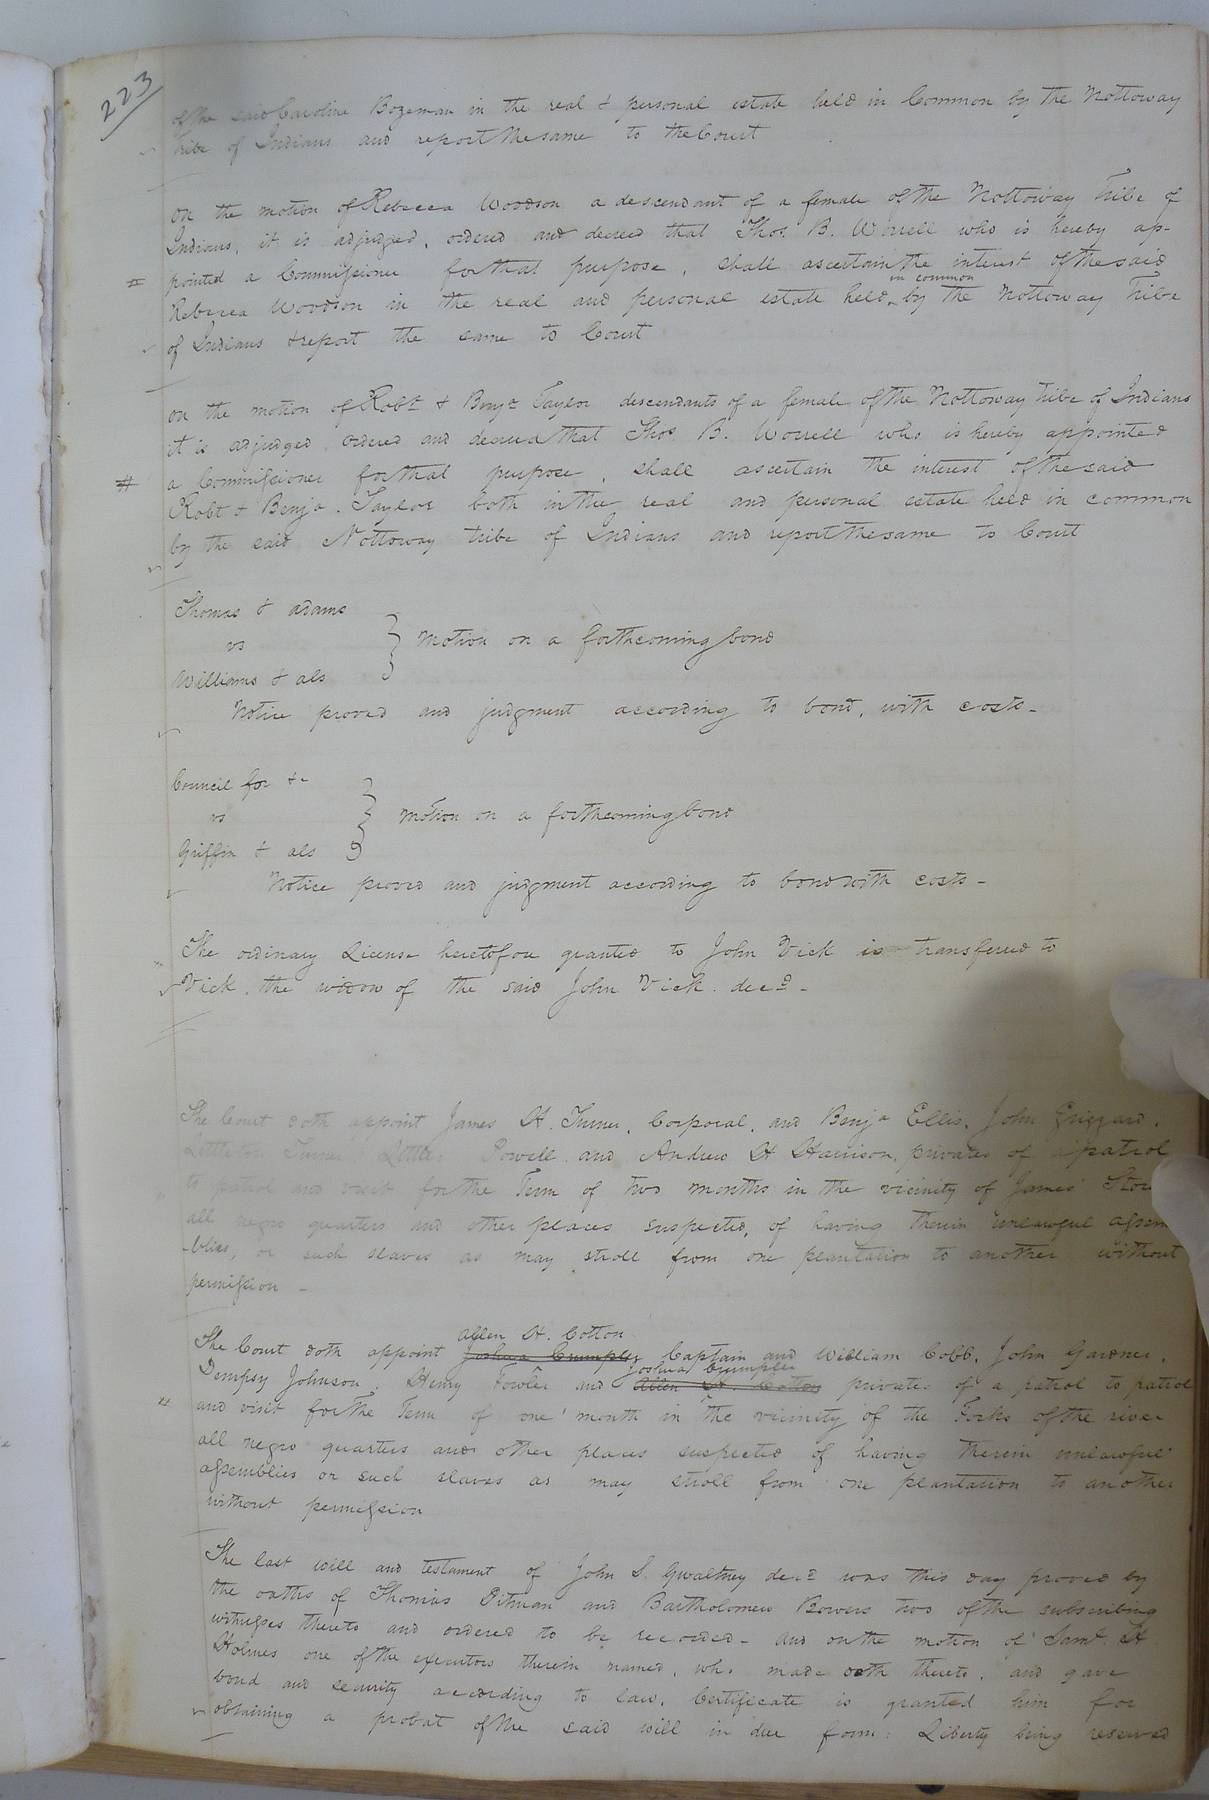 223
of the said Caroline Bozeman in the real & personal estate held in Common by the Nottoway
Tribe of Indians and report the same to the Court
On the motion of Rebecca Woodson a descendant of a female of the Nottoway Tribe of
Indians, it is adjudged, ordered and decreed that Thos. B. Worrell who is hereby ap-
pointed a Commissioner for that purpose, shall ascertain the interest of the said
in common
Rebecca Woodson in the real and personal estate held by the Nottoway Tribe
of Indians & report the same to Court
On the motion of Robt & Benja Taylor descendants of a female of the Nottoway tribe of Indians
it is adjudged, ordered and decreed that Thos B. Worrell who is hereby appointed
a Commissioner for that purpose, shall ascertain the interest of the said
Robt & Benja. Taylor both in the real and personal estate held in common
by the said Nottoway tribe of Indians and report the same to Court
Thomas & adams
vs
Motion on a forthcoming bond
Williams & als
Notice proved and judgment according to bond, with costs-
Council for &c
vs
Motion on a forthcoming bond
Griffin & als
Notice proved and judgment according to bond with costs-
The ordinary License heretofore granted to John Vick is transferred to
Vick, the widow of the said John Vick. decd-
The Court doth appoint James H. Turner, Corporal, and Benja Ellis, John Grizzard,
Littleton Turner, Powell and Andrew H Harrison, privates of a patrol
to patrol and visit for the Term of two months in the vicinity of James' Store
all negro quarters and other places suspected, of having therein unlawful assem
-blies, or such slaves as may stroll from one plantation to another without
permission -
Allen H. Cotton
The Court doth appoint Joshua Crumpler Captain and William Cobb, John Gardner,
Joshua Crumpler
Dempsy Johnson, Henry Fowler and Allen H. Cotton privates of a patrol to patrol
and visit for the Term of one month in the vicinity of the Forks of the river
all negro quarters and other places suspected of having therein unlawful
assemblies or such slaves as may stroll from one plantation to another
without permission
The last will and testament of John S. Gwaltney decd was this day proved by
the oaths of Thomas Pitman and Bartholomew Bowers two of the subscribing
witnesses thereto and ordered to be recorded - and on the motion of Saml. H
Holmes one of the executors therein named, who made oath thereto, and gave
bond and security according to law, Certificate is granted him for
obtaining a probat of the said will in due form: Liberty being reserved